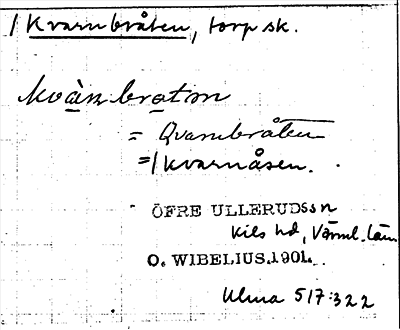 / Kvarnbråten, torp sk.
kvàn bratɷn
= Qvarnbråten
=/ kvarnåsen.
ÖFRE ULLERUDS sn
Kils hd, Värml. län
O. WIBELIUS.1901.
Ulma 517:322